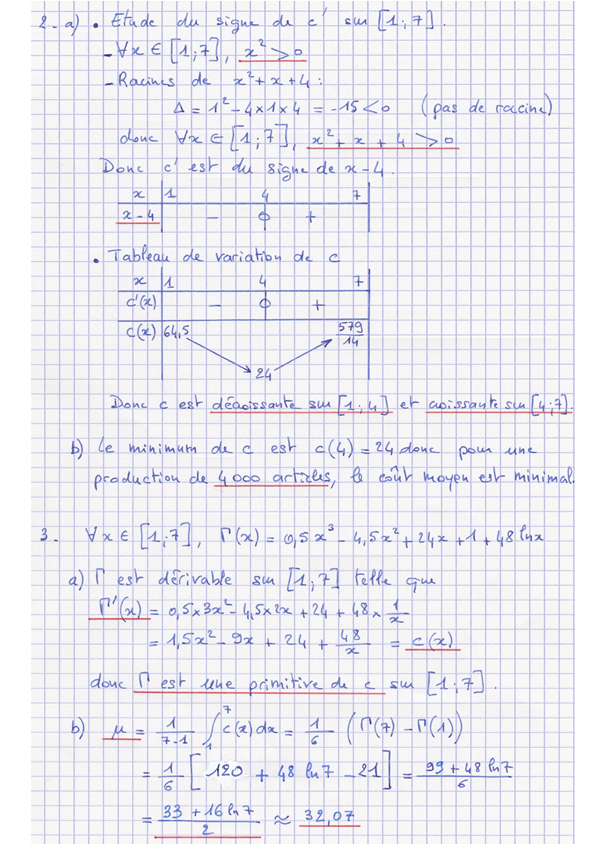 2. a) • Etude du signe de c' sur [1;7].
- ∀x ∈ [1;7], x² > 0
- Racines de x² + x + 4 :
Δ = 1² - 4×1×4 = -15 < 0 (pas de racine)
donc ∀x ∈ [1;7], x² + x + 4 > 0
Donc c' est du signe de x - 4.
x 1 4 7
x - 4 - 0 +
• Tableau de variation de c
x 1 4 7
c'(x) - 0 +
c(x) 64,5 24 579/14
Donc c est décroissante sur [1;4] et croissante sur [4;7].
b) Le minimum de c est c(4) = 24 donc pour une
production de 4 000 articles, le coût moyen est minimal.
3. ∀x ∈ [1;7], Γ(x) = 0,5x³ - 4,5x² + 24x + 1 + 48 ln x
a) Γ est dérivable sur [1;7] telle que
Γ'(x) = 0,5×3x² - 4,5×2x + 24 + 48 × 1/x
= 1,5x² - 9x + 24 + 48/x = c(x)
donc Γ est une primitive de c sur [1;7].
b) μ = 1/(7-1) ∫₁⁷ c(x) dx = 1/6 (Γ(7) - Γ(1))
= 1/6 [120 + 48 ln 7 - 21] = (99 + 48 ln 7)/6
= (33 + 16 ln 7)/2 ≈ 32,07